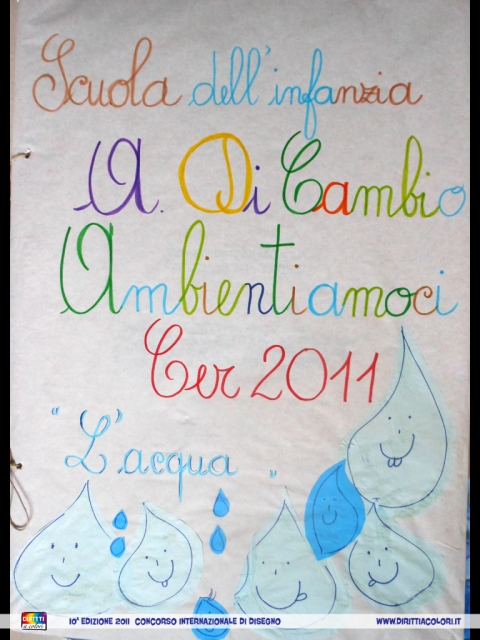 Scuola dell'infanzia
A. Di Cambio
Ambientiamoci
Cer 2011
"L'acqua"
DIRITTI a colori
10ª EDIZIONE 2011 CONCORSO INTERNAZIONALE DI DISEGNO
WWW.DIRITTIACOLORI.IT